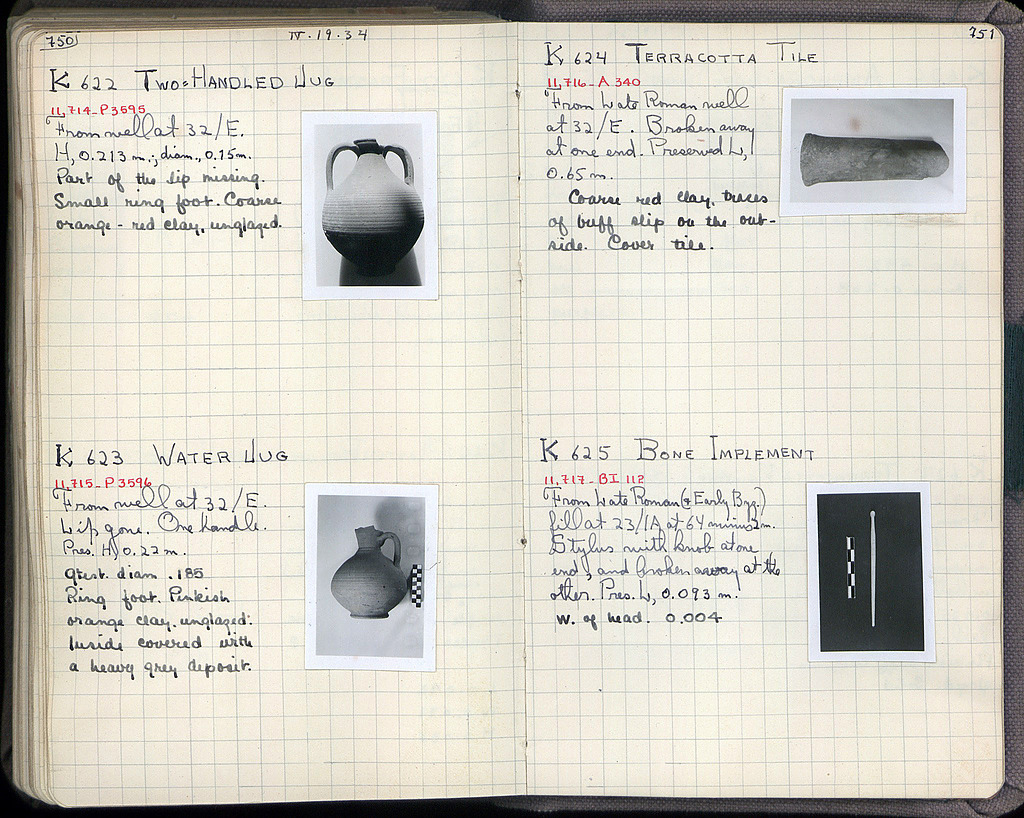 750
IV.19.34
K 622 TWO-HANDLED JUG
11,714-P3595
From well at 32/E.
H, 0.213 m.; diam., 0.15m.
Part of the lip missing.
Small ring foot. Coarse
orange-red clay, unglazed.
K 623 WATER JUG
11,715-P3596
From well at 32/E.
Lip gone. One handle.
Pres. H, 0.22 m.
gtest. diam. .185
Ring foot. Pinkish
orange clay, unglazed.
Inside covered with
a heavy grey deposit.
751
K 624 TERRACOTTA TILE
11,716-A 340
From Late Roman well
at 32/E. Broken away
at one end. Preserved L,
0.65 m.
Coarse red clay, traces
of buff slip on the out-
side. Cover tile.
K 625 BONE IMPLEMENT
11,717-BI 112
From Late Roman (& Early Byz.)
fill at 23/IA, at 64 minus 2m.
Stylus with knob at one
end, and broken away at the
other. Pres. L, 0.093 m.
W. of head. 0.004